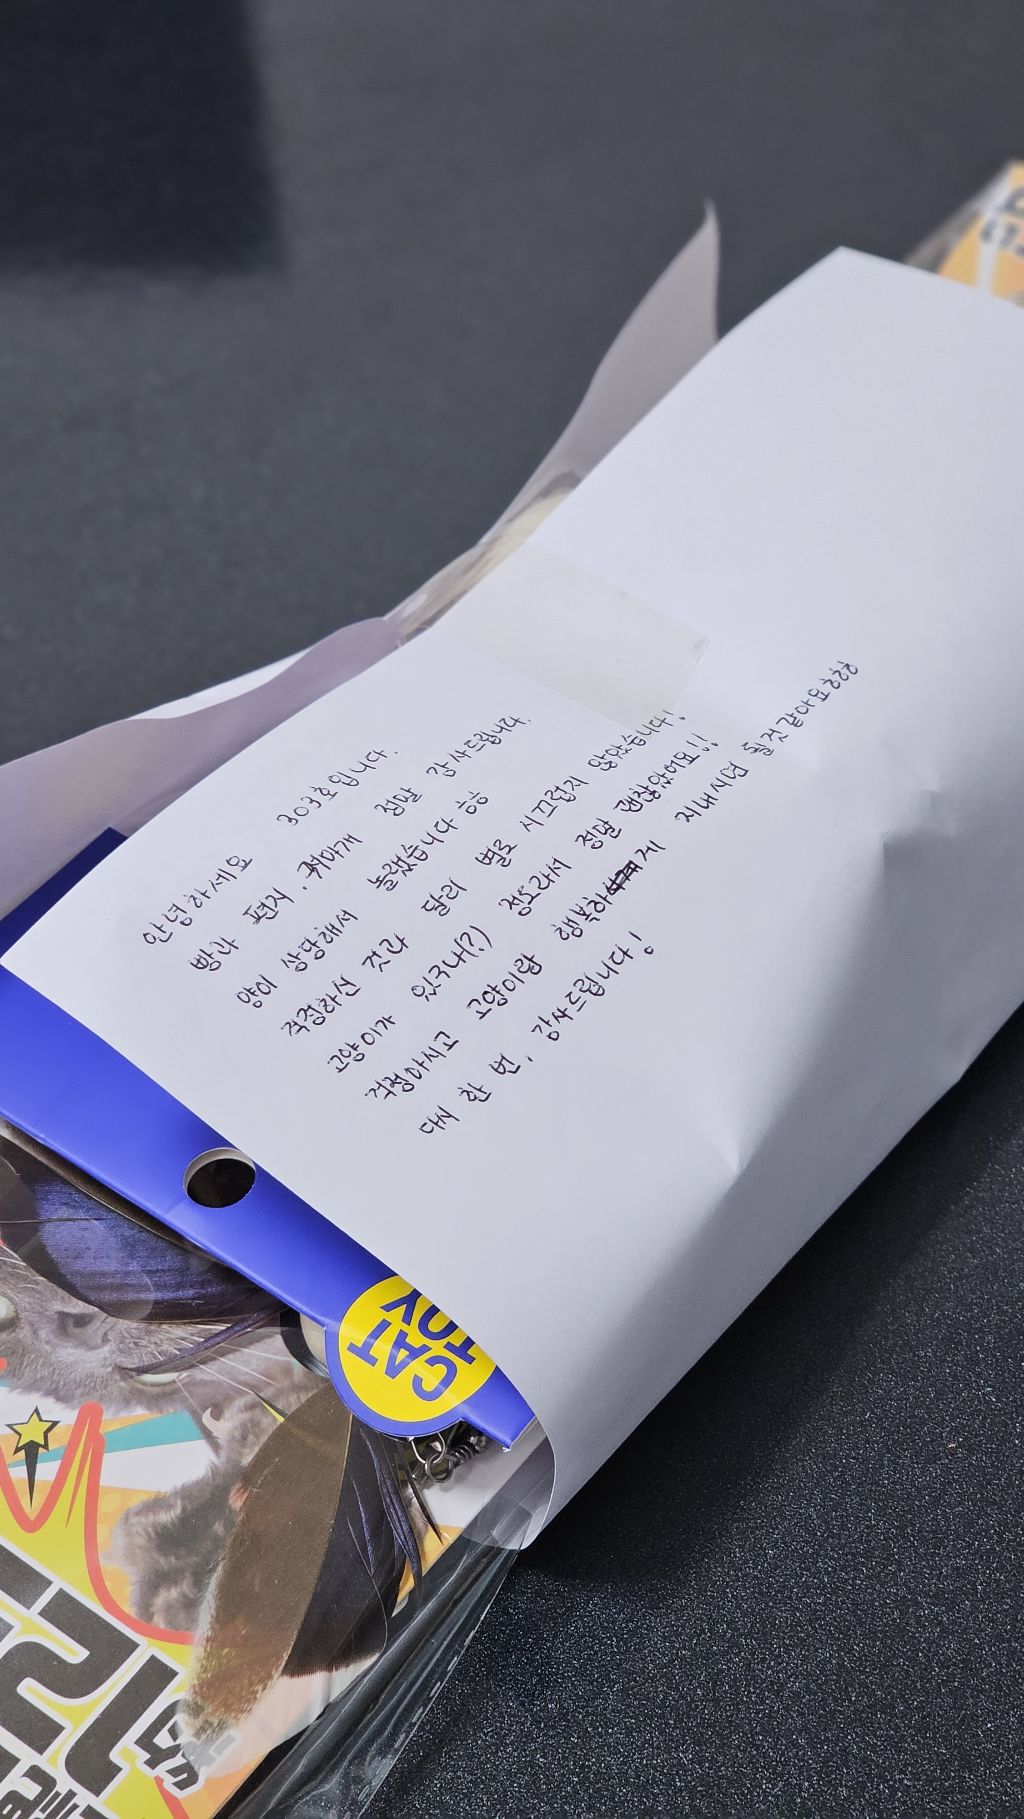 안녕하세요 303호입니다.
빵과 편지, 귀마개 정말 감사드립니다.
양이 상당해서 놀랬습니다 ㅎㅎ
걱정하신 것과 달리 별로 시끄럽지 않았습니다!
고양이가 있구나(?) 정도라서 정말 괜찮았어요!!
걱정마시고 고양이랑 행복하게 지내시면 될것같아요ㅎㅎㅎ
다시 한 번, 감사드립니다!
CAT